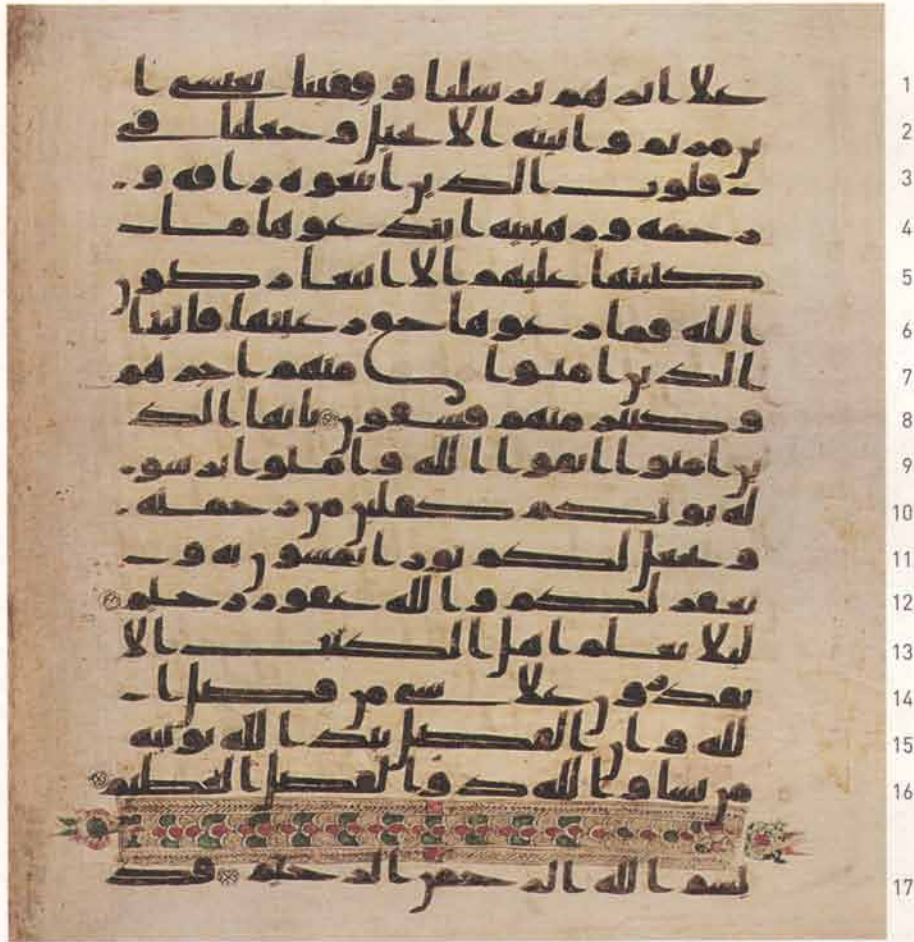 1 علا اثرهم برسلنا و قفينا بعيسى ا
2 بن مريم و اتينه الانجيل و جعلنا في
3 قلوب الذين اتبعوه رافة و
4 رحمة و رهبنية ابتدعوها ما
5 كتبنها عليهم الا ابتغا رضون
6 الله فما رعوها حق رعيتها فاتينا
7 الذين امنوا منهم اجرهم
8 و كثير منهم فسقون يايها الذ
9 ين امنوا اتقوا الله و امنوا برسو
10 له يوتكم كفلين من رحمته
11 و يجعل لكم نورا تمشون به و
12 يغفر لكم و الله غفور رحيم
13 ليلا يعلم اهل الكتب الا
14 يقدرون علا شي من فضل ا
15 لله و ان الفضل بيد الله يوتيه
16 من يشا و الله ذو الفضل العظيم
17 بسم الله الرحمن الرحيم قد